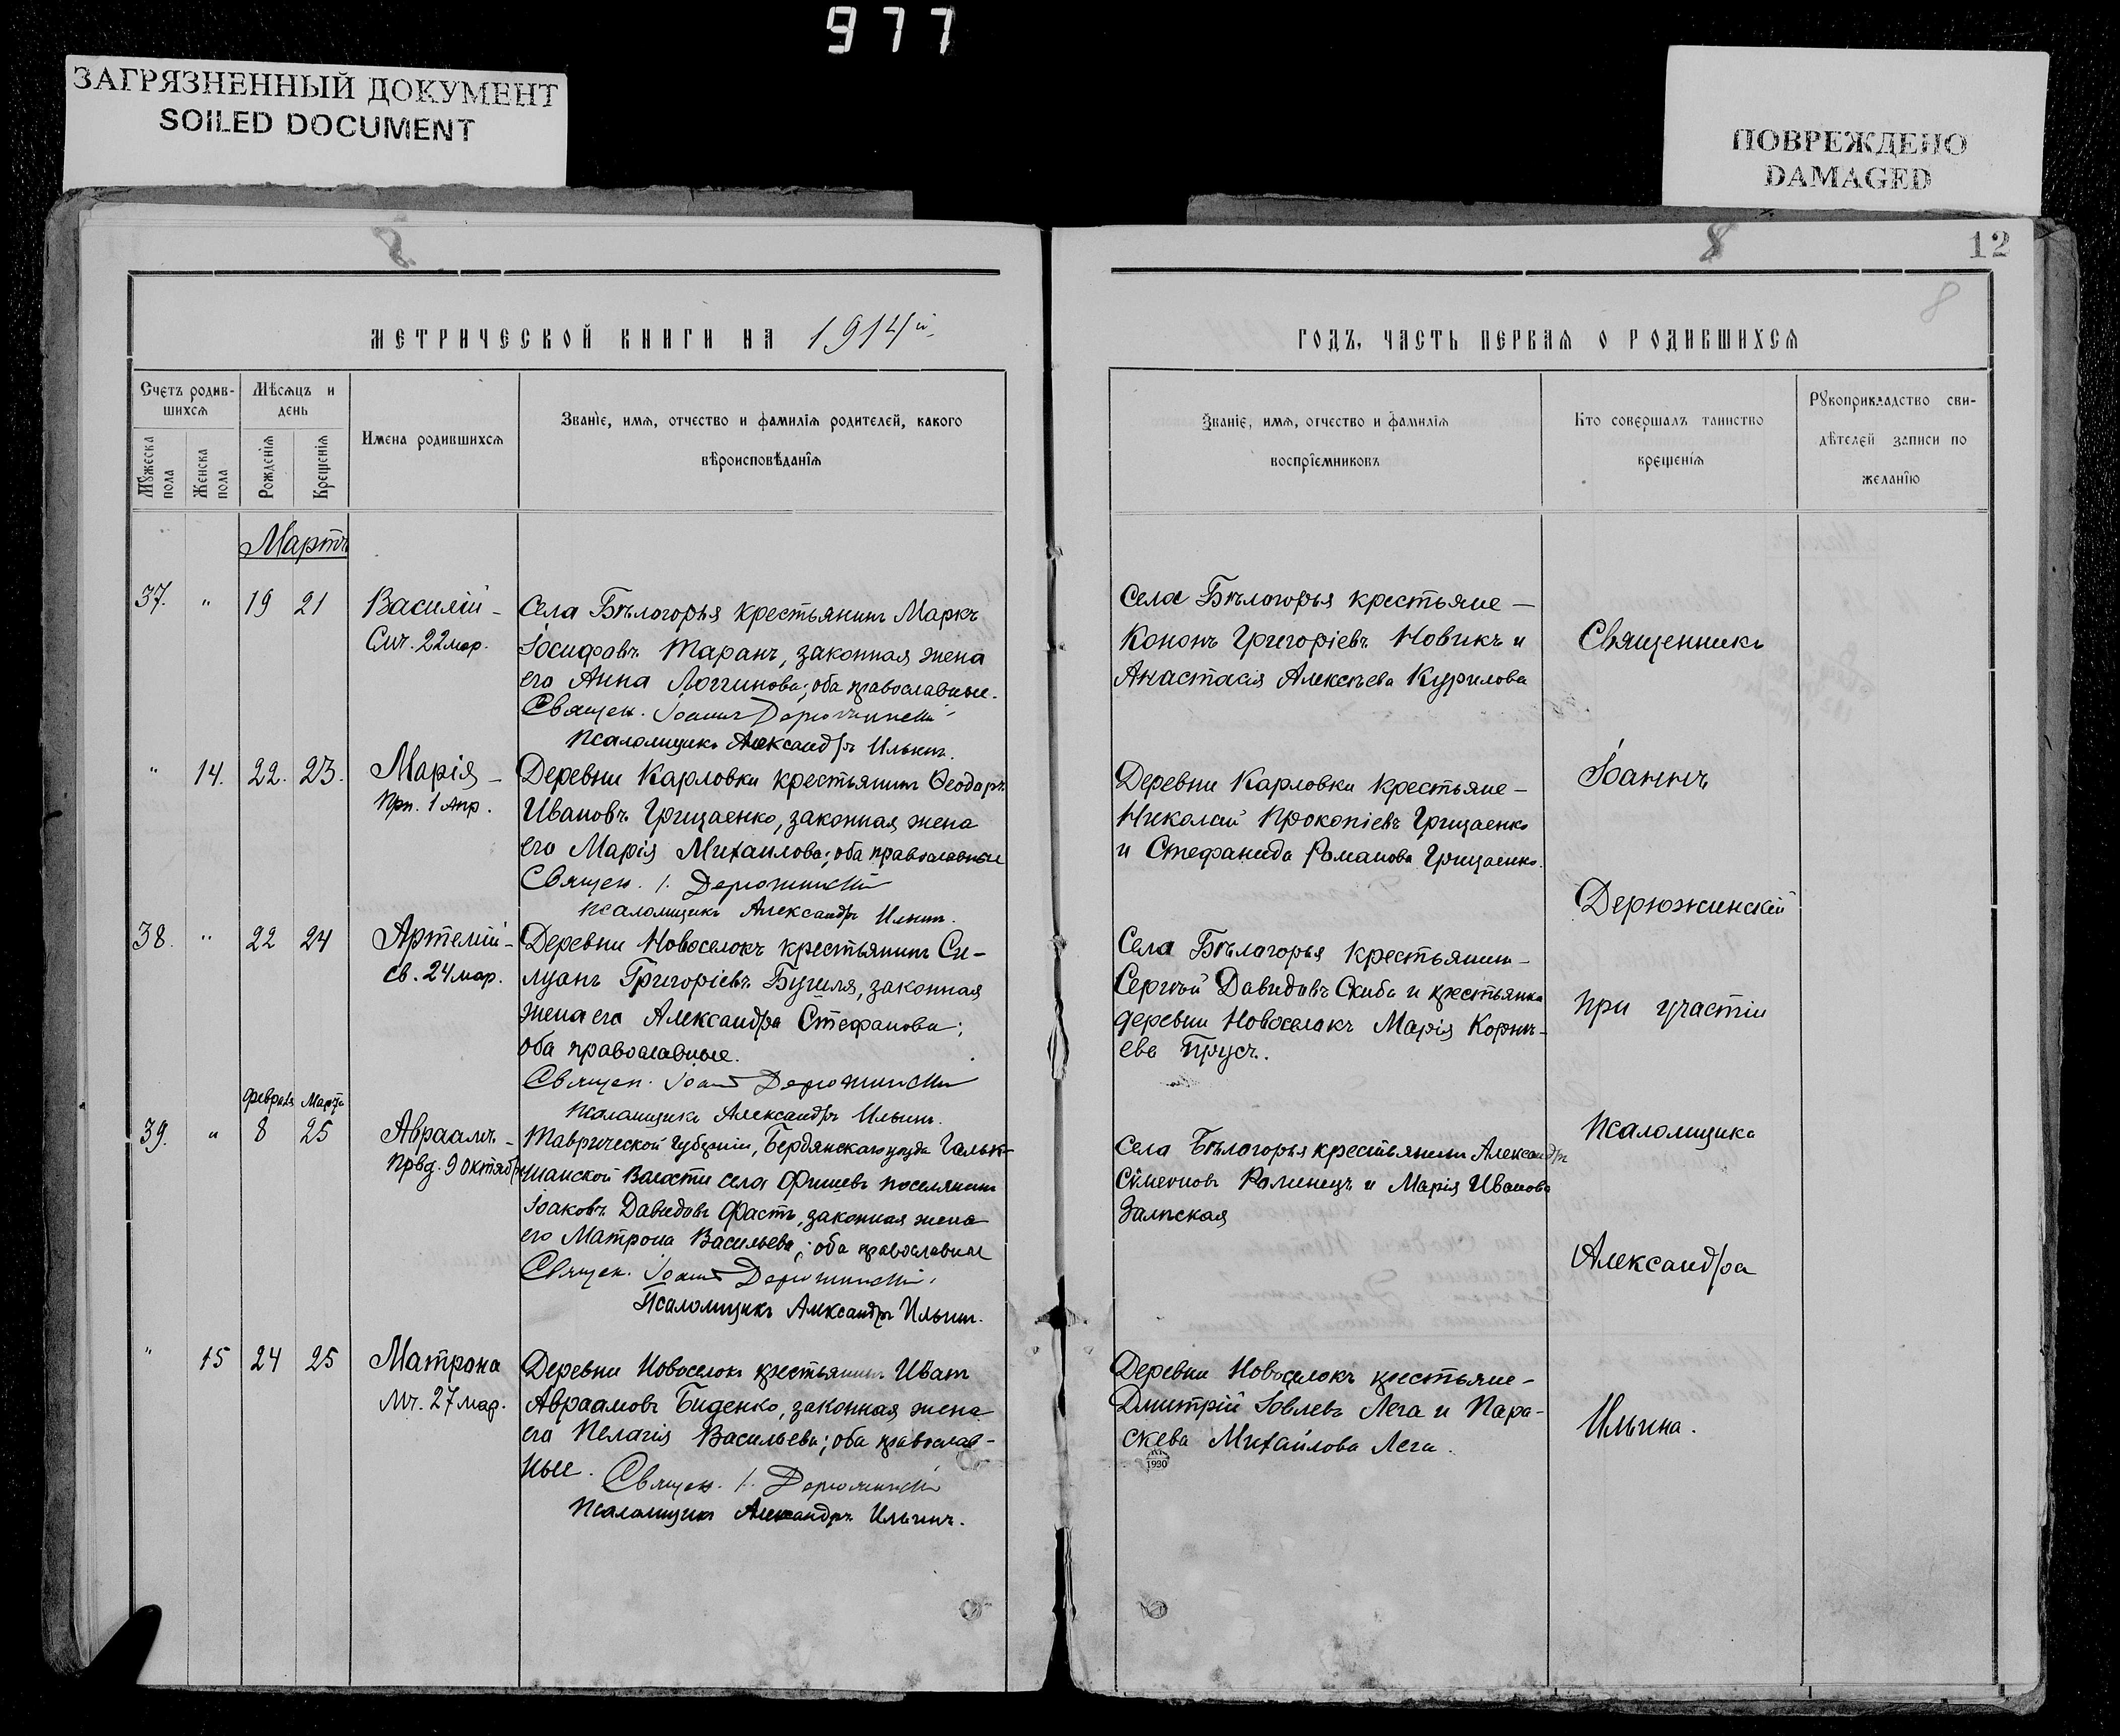 977
ЗАГРЯЗНЕННЫЙ ДОКУМЕНТ
SOILED DOCUMENT
ПОВРЕЖДЕНО
DAMAGED
8
8
12
8
МЕТРИЧЕСКОЙ КНИГИ НА 1914й
ГОДЪ, ЧАСТЬ ПЕРВАЯ О РОДИВШИХСЯ
Счетъ родив-
шихся
Мѣсяцъ и
день
Мужеска
пола
Женска
пола
Рожденія
Крещенія
Имена родившихся
Званіе, имя, отчество и фамилія родителей, какого
вѣроисповѣданія
Званіе, имя, отчество и фамилія
воспріемниковъ
Кто совершалъ таинство
крещенія
Рукоприкладство сви-
дѣтелей записи по
желанію
Мартъ
37. " 19 21
Василій -
Смч. 22 мар.
Села Бѣлогорья крестьянинъ Маркъ
Іосифовъ Таранъ, законная жена
его Анна Логгинова; оба православные.
Священ. Іоаннъ Дерюжинскій
Псаломщикъ Александръ Ильинъ.
Села Бѣлогорья крестьяне -
Кононъ Григоріевъ Новикъ и
Анастасія Алексѣева Курилова
" 14. 22. 23.
Марія -
Прп. 1 Апр.
Деревни Карловки крестьянинъ Ѳеодоръ
Ивановъ Грицаенко, законная жена
его Марія Михаилова; оба православные
Священ. І. Дерюжинскій
Псаломщикъ Александръ Ильинъ.
Деревни Карловки крестьяне -
Николай Прокопіевъ Грицаенко
и Стефанида Романова Грицаенко.
38. " 22 24
Артемій -
св. 24 мар.
Деревни Новоселокъ крестьянинъ Си-
луанъ Григоріевъ Бугиля, законная
жена его Александра Стефанова;
оба православные.
Священ. Іоаннъ Дерюжинскій
Псаломщикъ Александръ Ильинъ.
Села Бѣлогорья крестьянинъ -
Сергѣй Давидовъ Скиба и крестьянка
деревни Новоселокъ Марія Корни-
ева Прусъ.
Февраля Марта
39. " 8 25
Авраамъ -
Првд. 9 Октября
Таврической губерніи, Бердянскаго уѣзда Гальб-
штатской Волости села Фишевъ поселянинъ
Іоаковъ Давидовъ Фастъ, законная жена
его Матрона Васильева; оба православные
Священ. Іоаннъ Дерюжинскій
Псаломщикъ Александръ Ильинъ.
Села Бѣлогорья крестьянинъ Александръ
Сѵмеоновъ Роменецъ и Марія Иванова
Залѣская
" 15 24 25
Матрона
Мч. 27 мар.
Деревни Новоселокъ крестьянинъ Иванъ
Авраамовъ Биденко, законная жена
его Пелагія Васильева; оба православ-
ные. Священ. І. Дерюжинскій
Псаломщикъ Александръ Ильинъ.
Деревни Новоселокъ крестьяне -
Димитрій Іовлевъ Лега и Пара-
скева Михайлова Лега.
1930
Священникъ
Іоаннъ
Дерюжинскій
при участіи
Псаломщика
Александра
Ильина.